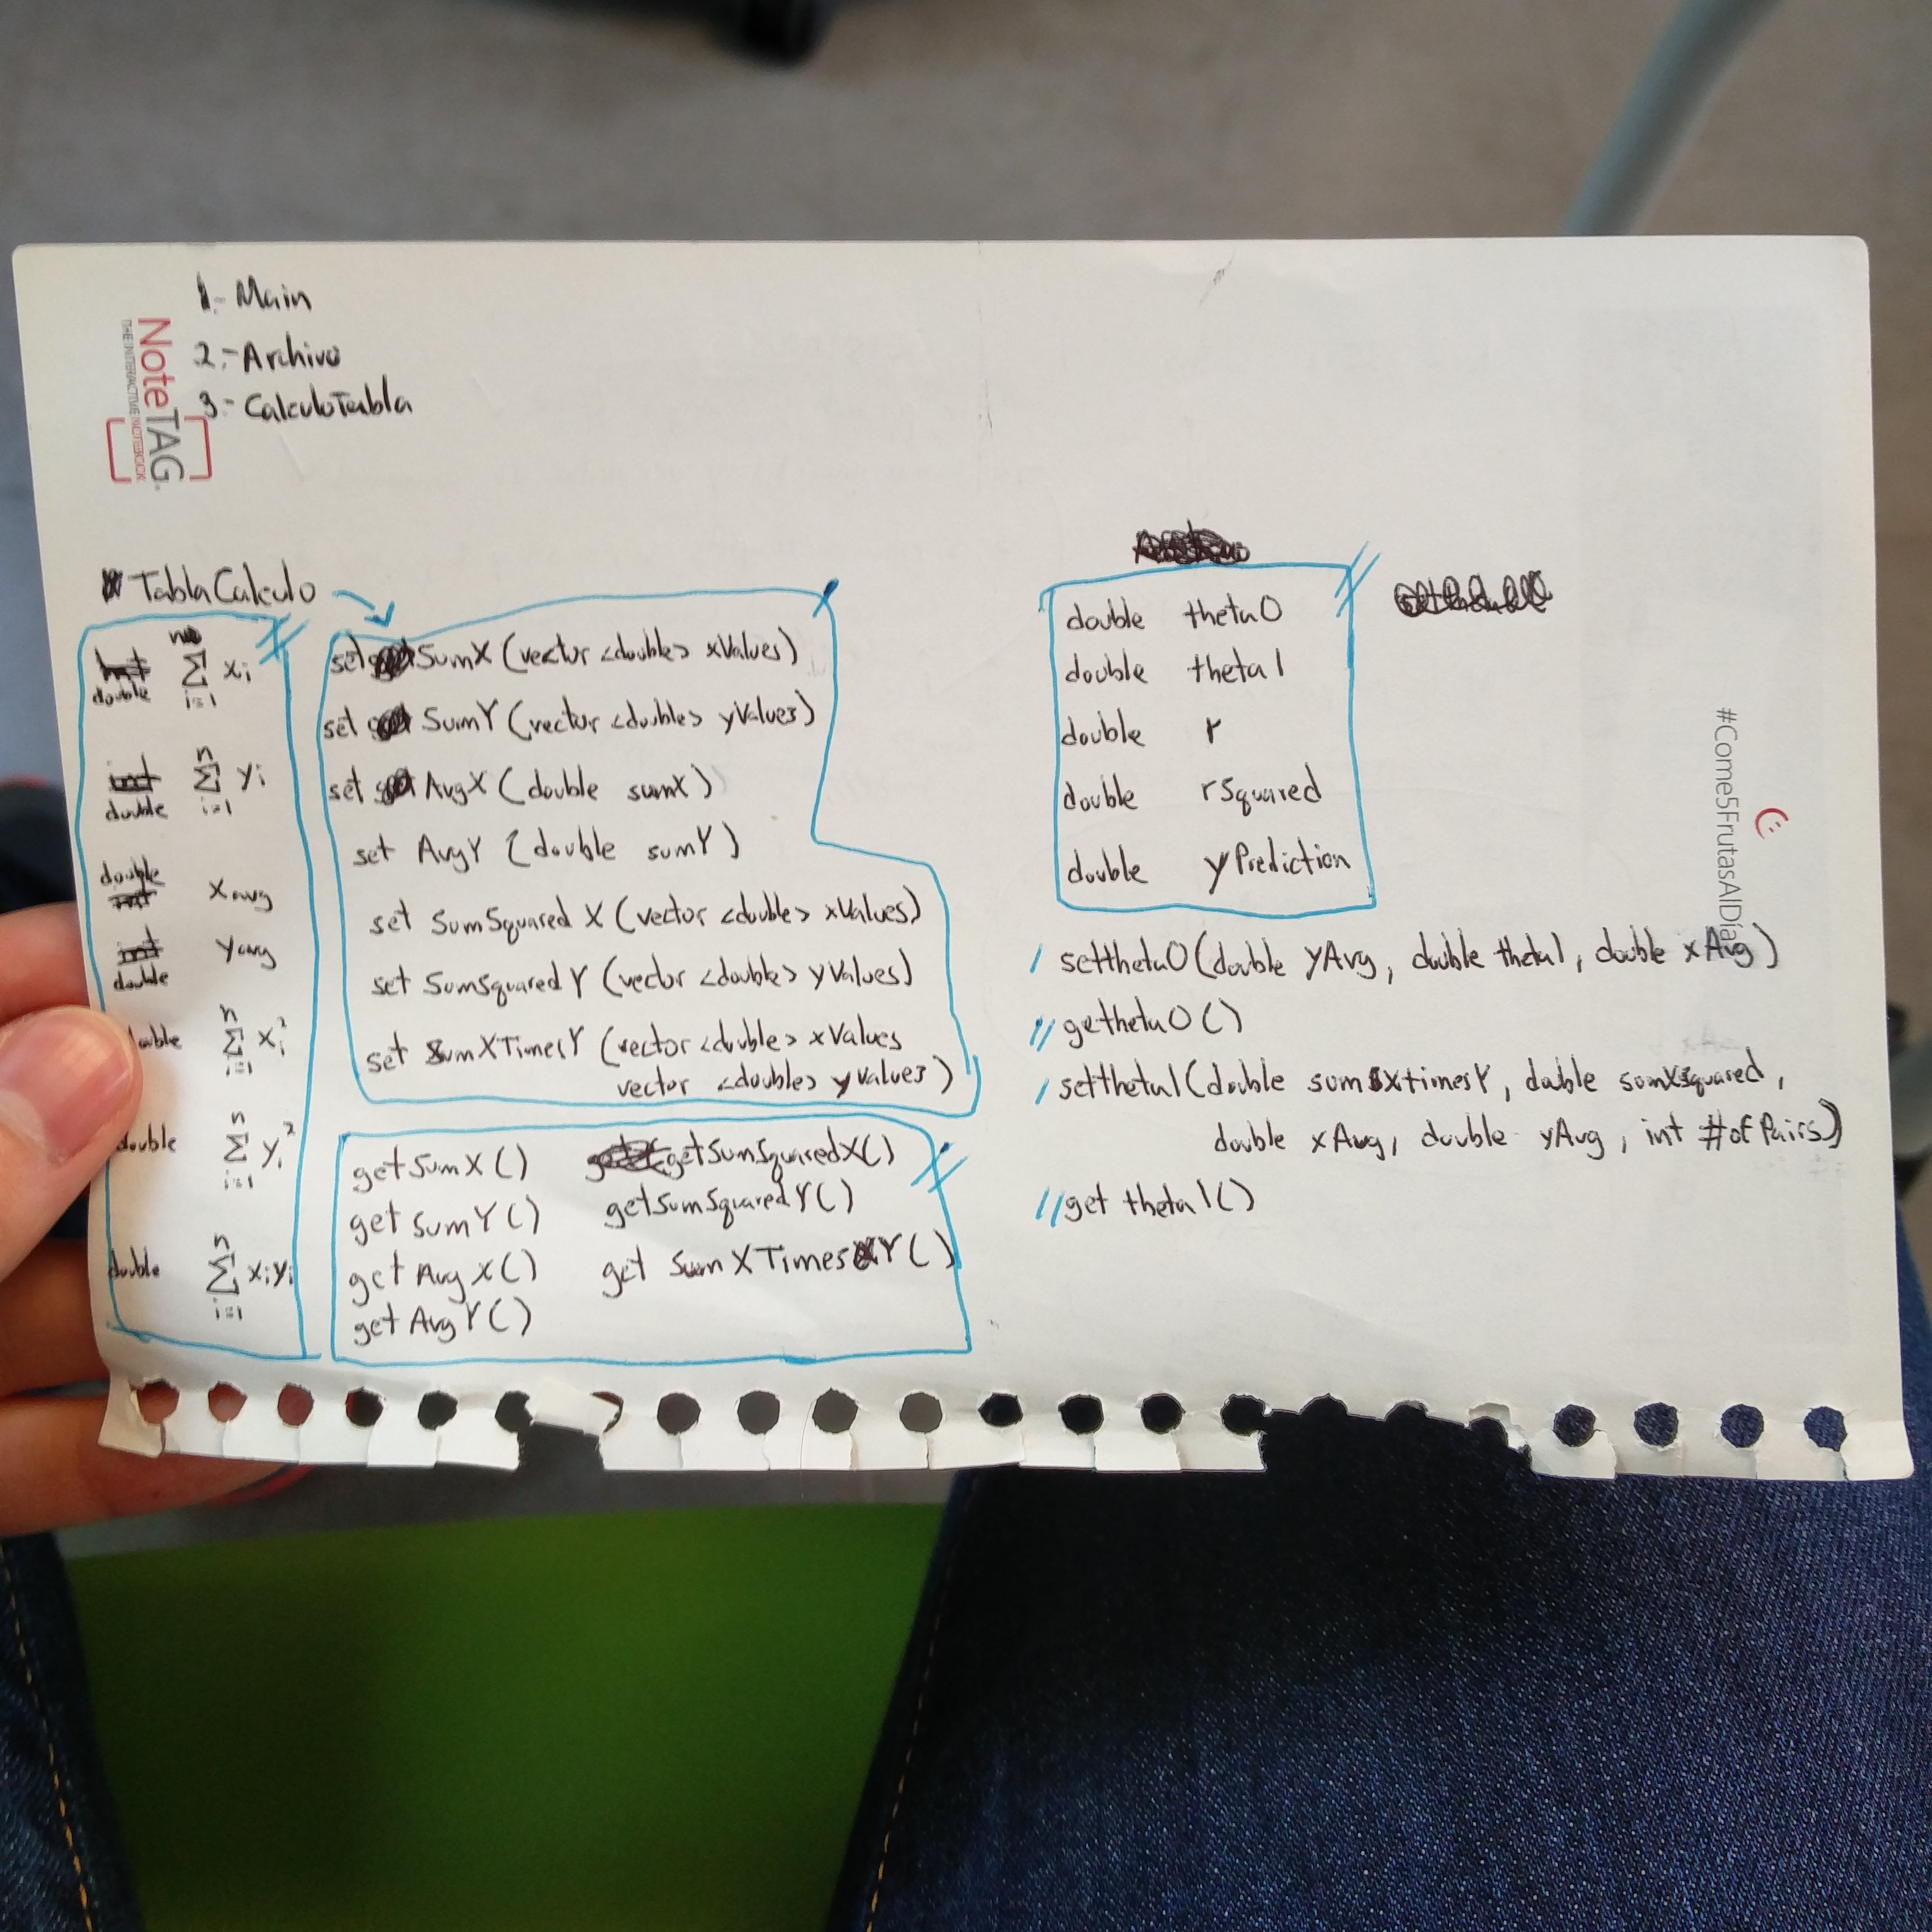 1.- Main
2.- Archivo
3.- CalculoTabla
NoteTAG.
THE INTERACTIVE NOTEBOOK
TablaCalculo
int double n Σ i=1 xi
int double n Σ i=1 yi
double int xavg
int double yavg
double n Σ i=1 xi²
double n Σ i=1 yi²
double n Σ i=1 xiyi
set SumX (vector <double> xValues)
set SumY (vector <double> yValues)
set AvgX (double sumX)
set AvgY (double sumY)
set SumSquared X (vector <double> xValues)
set SumSquared Y (vector <double> yValues)
set SumXTimesY (vector <double> xValues
vector <double> yValues)
getSumX() getSumSquaredX()
getSumY() getSumSquaredY()
getAvgX() get SumXTimesY()
getAvgY()
double theta0
double theta1
double r
double rSquared
double yPrediction
/ settheta0(double yAvg, double theta1, double xAvg)
// getheta0()
/ settheta1(double sumXtimesY, double sumXsquared,
double xAvg, double yAvg, int #ofPairs)
// get theta1()
#Come5FrutasAlDía